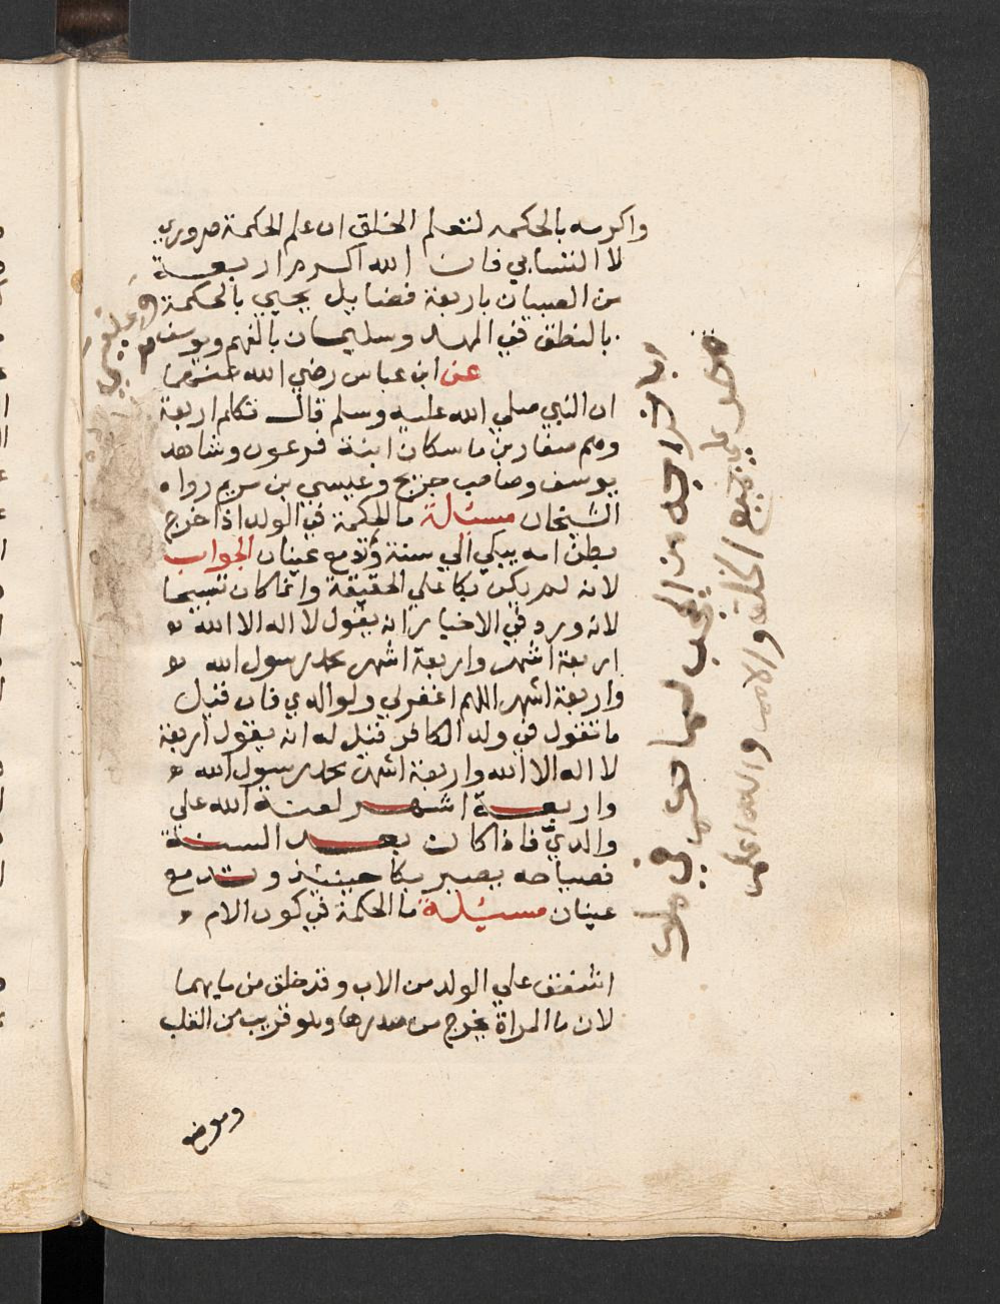 واكرمه بالحكمه لتعلم الخلق ان علم الحكمة ضروري
لا التنسابي فان الله اكرم اربعة
من الصبيان باربعة فضايل يحيي بالحكمة
بالنطق في المهد وسليمان بالفهم ويوسف
عن ابن عباس رضي الله عنهما
ان النبي صلي الله عليه وسلم قال تكلم اربعة
وهم صغار بن ماسكان ابنة فرعون وشاهد
يوسف وصاحب جريج وعيسي بن مريم رواه
الشيخان مسئلة ما الحكمة في الولد اذا خرج
بطن امه يبكي الي سنة وتدمع عيناه الجواب
لانه لم يكن بكا علي الحقيقة وانما كان تسبيحا
لانه ورد في الاخبار انه يقول لا اله الا الله
اربعة اشهر واربعة اشهر محمد رسول الله
واربعة اشهر اللهم اغفرلي ولوالدي فان قيل
ما تقول في ولد الكافر قيل له انه يقول اربعة
لا اله الا الله واربعة اشهر محمد رسول الله
واربعة اشهر لعنة الله علي
والدي فاذا كان بعد السنة
فصياحه يصير بكا حينيئذ وتدمع
عيناه مسئلة ما الحكمة في كون الام
اشفق علي الولد من الاب وقد خلق من مايهما
لان ما المراة يخرج من صدرها وهو قريب من القلب
وموضع
من العجب لما
محمد علي جميع الخلق والامم والله اعلم